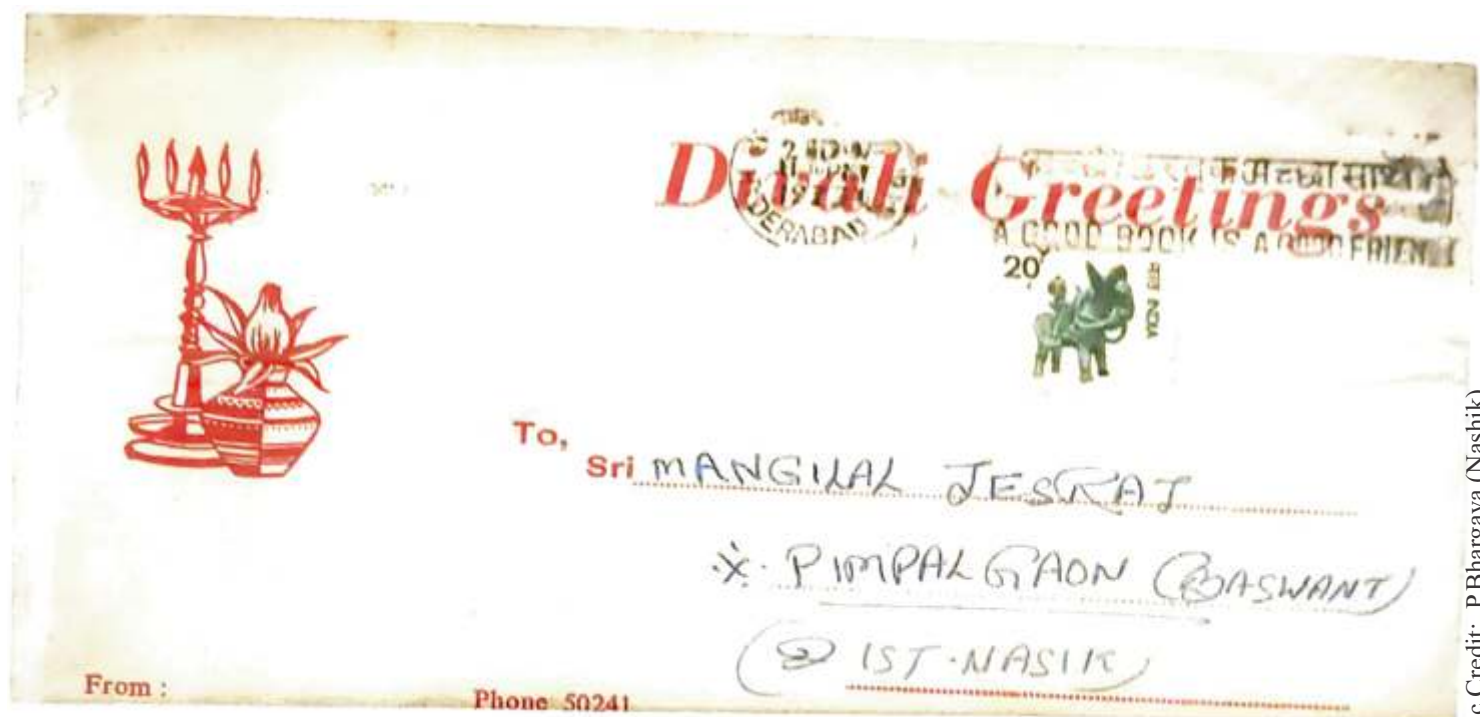 Divali Greetings
DERABAD
अच्छा साथी
A GOOD BOOK IS A GOOD FRIEND
20
भारत INDIA
To,
Sri MANGILAL JESRAJ
PIMPALGAON (BASWANT)
DIST. NASIK
From :
Phone 50241
c Credit: P.Bhargava (Nashik)